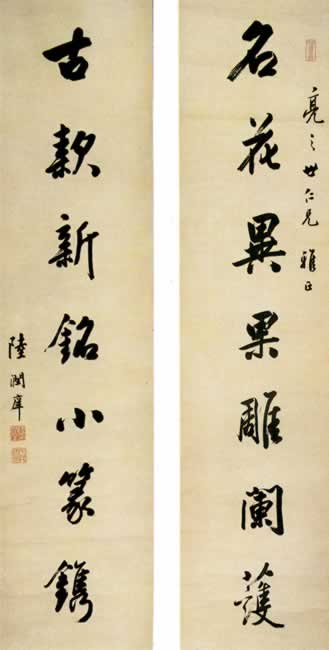 亮之世仁兄雅正
名花異果雕闌護
古款新銘小篆鐫
陸潤庠